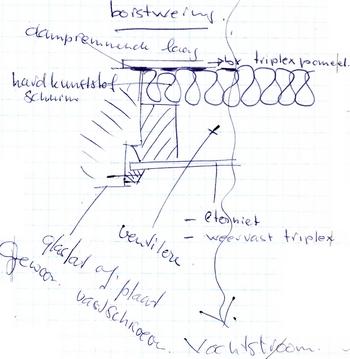 borstwering.
dampremmende laag
→ bv triplex paneel.
hard kunststof
schuim
- eterniet
- weervast triplex
ventileren
glaslat of plaat
gewoon
vastschroeven.
Vochtstroom.